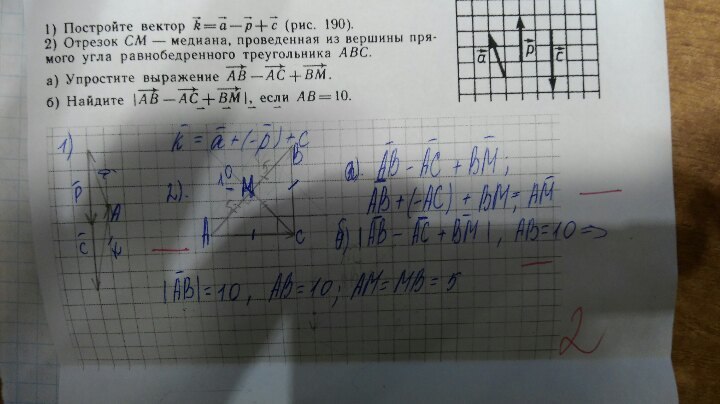 1) Постройте вектор k⃗ = a⃗ − p⃗ + c⃗ (рис. 190).
2) Отрезок CM — медиана, проведенная из вершины пря-
мого угла равнобедренного треугольника ABC.
а) Упростите выражение AB⃗ − AC⃗ + BM⃗.
б) Найдите |AB⃗ − AC⃗ + BM⃗|, если AB = 10.
a⃗ p⃗ c⃗
1) k̄ = ā + (-p̄) + c
p̄ A
c̄
2). 10 M B
A C
а). AB̄ - AC̄ + BM̄;
AB + (-AC) + BM; AM̄
б) |AB̄ - AC̄ + BM̄|, AB = 10 =>
|AB̄| = 10, AB = 10; AM = MB = 5
2